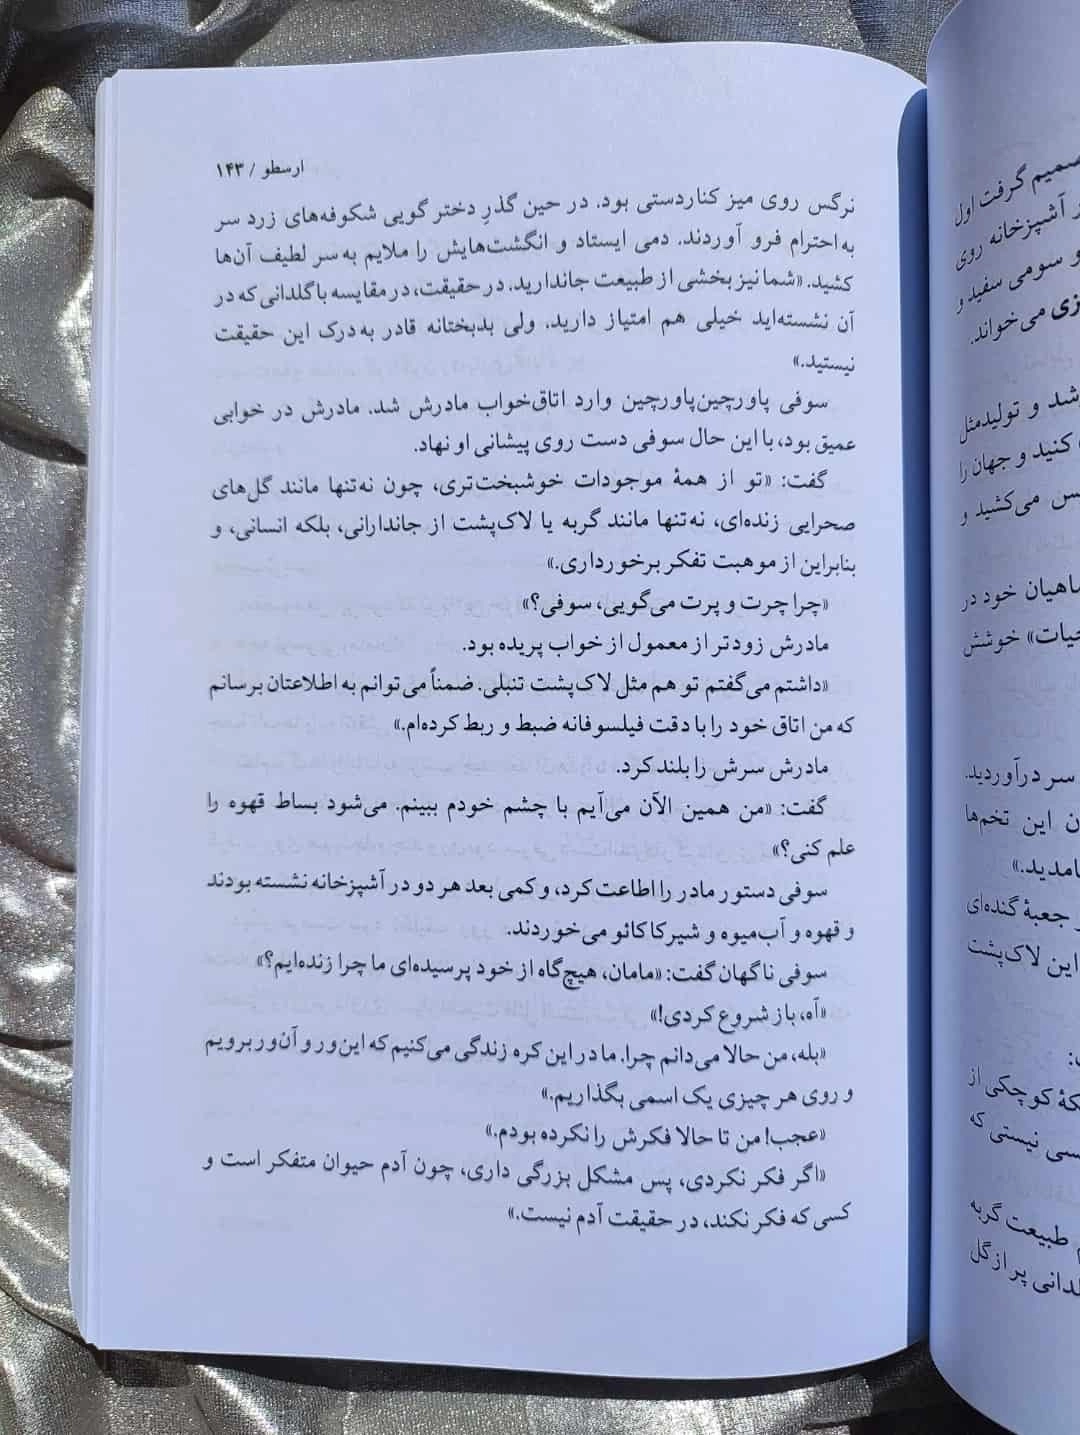 ارسطو / ۱۴۳
نرگس روی میز کناردستی بود. در حین گذرِ دختر گویی شکوفه‌های زرد سر
به احترام فرو آوردند. دمی ایستاد و انگشت‌هایش را ملایم به سر لطیف آن‌ها
کشید. «شما نیز بخشی از طبیعت جاندارید. در حقیقت، در مقایسه با گلدانی که در
آن نشسته‌اید خیلی هم امتیاز دارید. ولی بدبختانه قادر به درک این حقیقت
نیستید.»
سوفی پاورچین‌پاورچین وارد اتاق‌خواب مادرش شد. مادرش در خوابی
عمیق بود، با این حال سوفی دست روی پیشانی او نهاد.
گفت: «تو از همهٔ موجودات خوشبخت‌تری، چون نه‌تنها مانند گل‌های
صحرایی زنده‌ای، نه‌تنها مانند گربه یا لاک‌پشت از جاندارانی، بلکه انسانی، و
بنابراین از موهبت تفکر برخورداری.»
«چرا چرت و پرت می‌گویی، سوفی؟»
مادرش زودتر از معمول از خواب پریده بود.
«داشتم می‌گفتم تو هم مثل لاک‌پشت تنبلی. ضمناً می‌توانم به اطلاعتان برسانم
که من اتاق خود را با دقت فیلسوفانه ضبط و ربط کرده‌ام.»
مادرش سرش را بلند کرد.
گفت: «من همین الآن می‌آیم با چشم خودم ببینم. می‌شود بساط قهوه را
علم کنی؟»
سوفی دستور مادر را اطاعت کرد، و کمی بعد هر دو در آشپزخانه نشسته بودند
و قهوه و آب‌میوه و شیرکاکائو می‌خوردند.
سوفی ناگهان گفت: «مامان، هیچ‌گاه از خود پرسیده‌ای ما چرا زنده‌ایم؟»
«آه، باز شروع کردی!»
«بله، من حالا می‌دانم چرا. ما در این کره زندگی می‌کنیم که این‌ور و آن‌ور برویم
و روی هر چیزی یک اسمی بگذاریم.»
«عجب! من تا حالا فکرش را نکرده بودم.»
«اگر فکر نکردی، پس مشکل بزرگی داری، چون آدم حیوان متفکر است و
کسی که فکر نکند، در حقیقت آدم نیست.»
گرفت اول
آشپزخانه روی
و سومی سفید و
می‌خواند.
شد و تولیدمثل
کنید و جهان را
می‌کشید و
ماهیان خود در
حیات» خوشش
سر درآوردید.
این تخم‌ها
جعبهٔ گنده‌ای
این لاک‌پشت
کوچکی از
نیستی که
طبیعت گربه
پر از گل